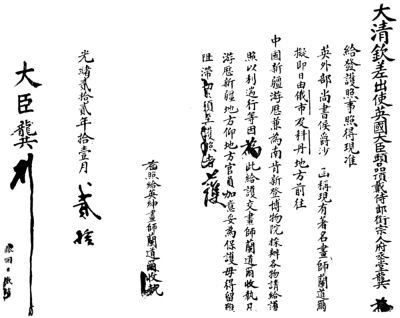 大清欽差出使英國大臣頭品頂戴侍郎銜宗人府堂龔 為
給發護照事照得現准
英外部尚書侯爵沙 函稱現有著名畫師蘭道爾
擬即日由俄市及科丹地方前往
中國新疆游歷兼為南肯新登博物院採辦各物請給護
照以利遄行等因為此給護交畫師蘭道爾收執凡
游歷新疆地方仰地方官員加應妥為保護毋得留難
阻滯須至護照者 護
右照給英紳畫師蘭道爾收執
光緒貳拾貳年拾壹月 貳拾
大臣龔